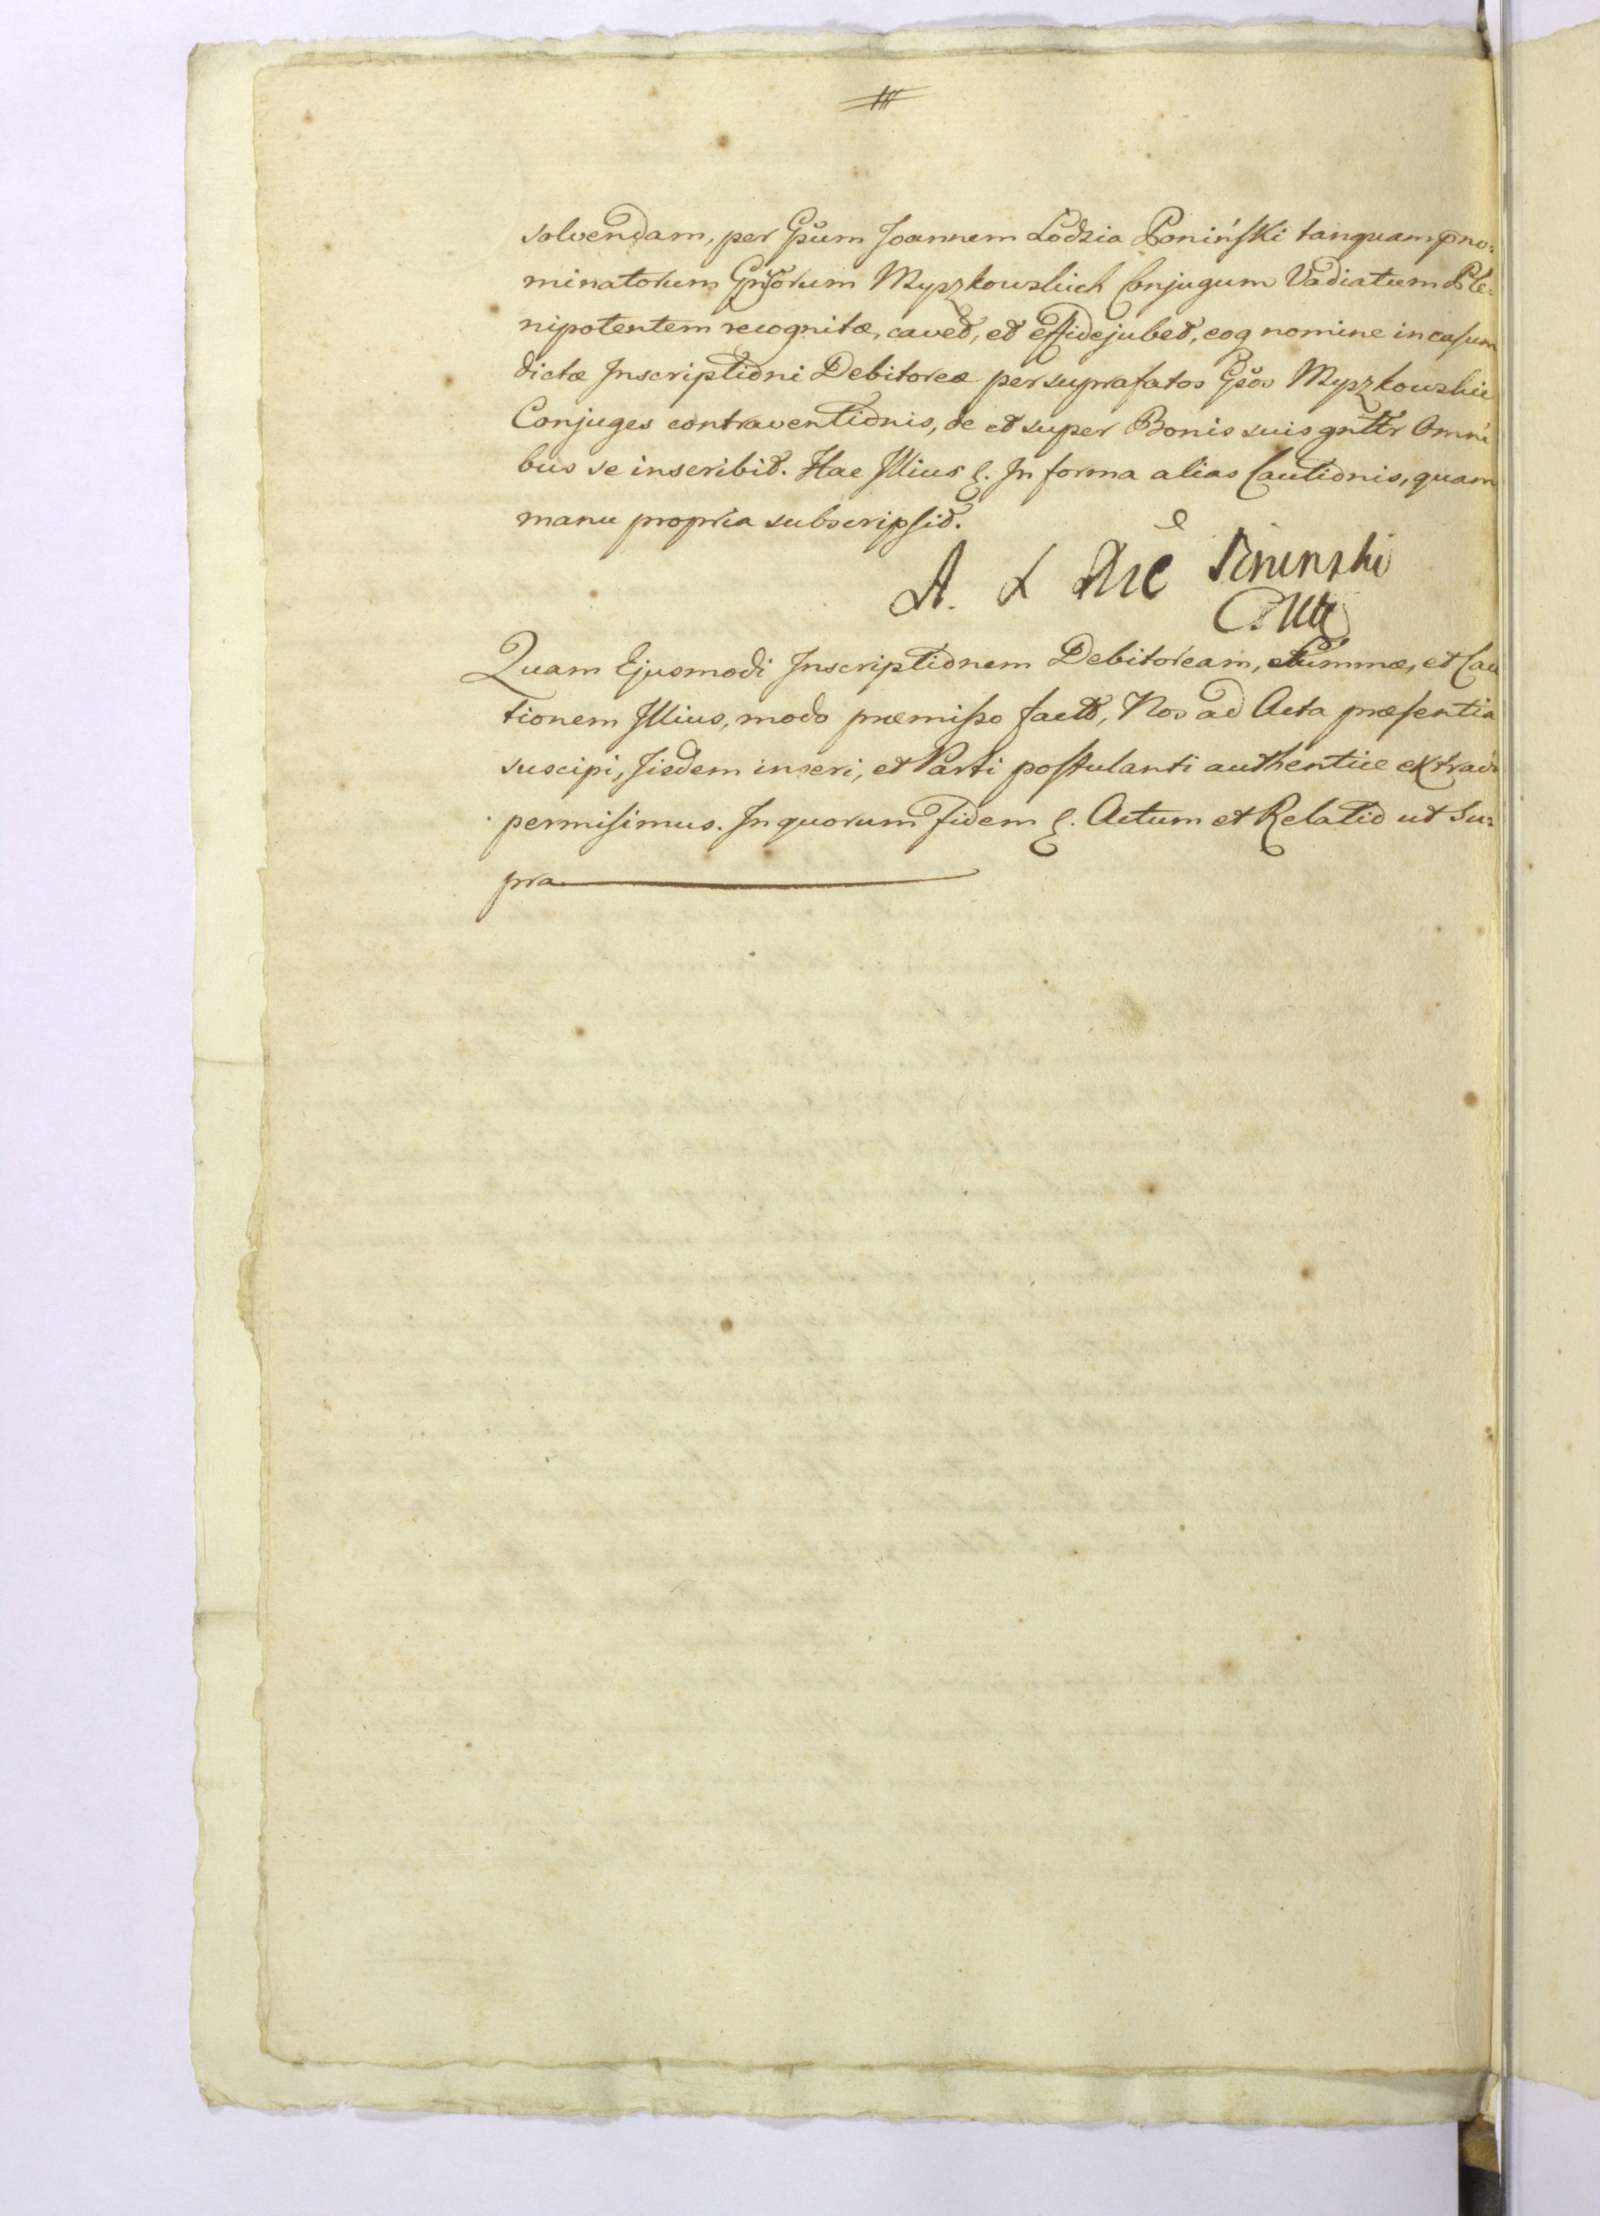 solvendam, per Gsum Joannem Lodzia Poniński tanquam pno-
minatorum Gnsorum Myszkowskich Conjugum Vadiatum Ple-
nipotentem recognitæ, cavet, et effidejubet, eoq nomine in casum
dictæ Inscriptioni Debitoreæ per suprafatos Gsos Myszkowskie
Conjuges contraventionis, se et super Bonis suis gnltr Omni
bus se inscribit. Hac Illius &. In forma alias Cautionis, quam
manu propria subscripsit.
A. Ł
Poninski
Quam Ejusmodi Inscriptionem Debitoream, Summæ, et Cau
tionem Illius, modo præmisso fact, Nos ad Acta præsentia
suscipi, Iisdem inseri, et Parti postulanti authentice extradi
permisimus. In quorum fidem &. Actum et Relatio ut Su-
pra